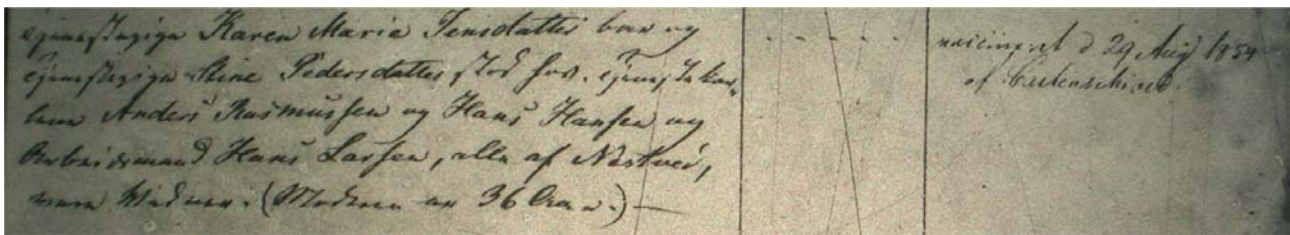 Tjenestepige Karen Maria Jensdatter bar og
Tjenestepige Stine Pedersdatter stod hos. Tjenestekar-
lene Anders Rasmussen og Hans Hansen og
Arbeidsmand Hans Larsen, alle af Nestved,
vare Vidner. (Moderen er 36 Aar.) —
- - - - -
vaccineret d 29 Aug 1854
af